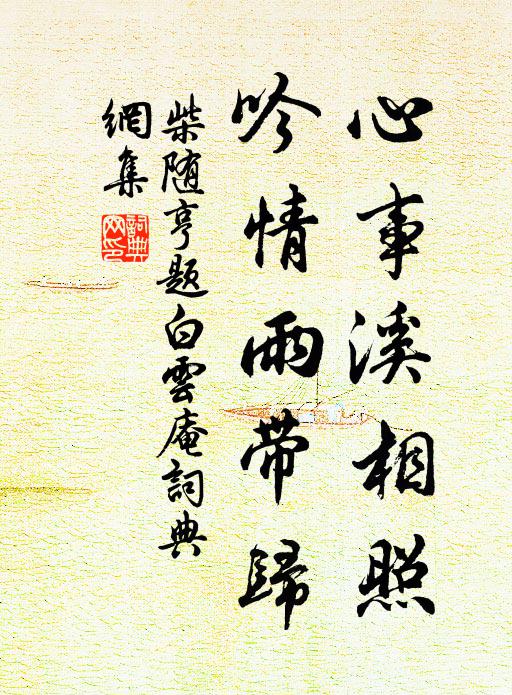 心事溪相照
吟情雨带歸
柴随亨题白雲庵詞典
網集
詞典
网印